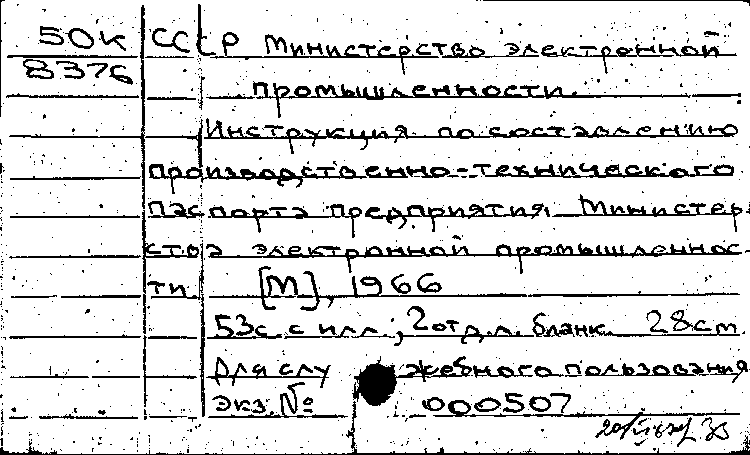 50К СССР Министерство электронной
8376 промышленности.
Инструкция по составлению
производственно-технического
паспорта предприятия Министер
ства электронной промышленнос-
ти. [М], 1966
53с. с илл.; 2 отд.л. бланк. 28см.
Для служебного пользования
экз. № 000507